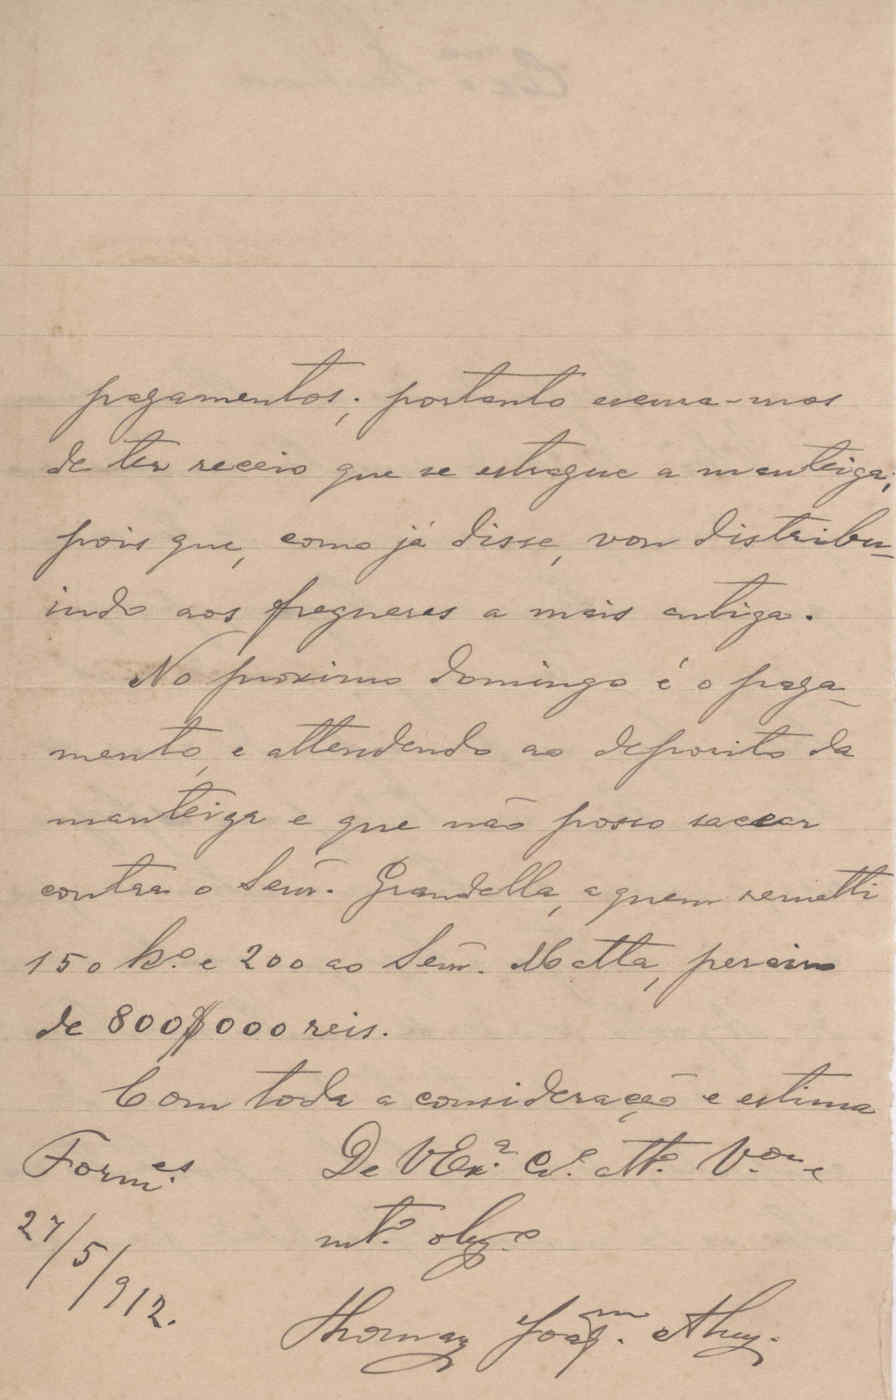 pagamentos; portanto escusa-mos
de ter receio que se estrague a manteiga;
pois que, como já disse, vou distribu-
indo aos freguezes a mais antiga.
No proximo domingo é o paga-
mento, e attendendo ao deposito da
manteiga e que não posso saccar
contra o Senr. Grandella, a quem remetti
150 ko. e 200 ao Senr. Motta, preciso
de 800$000 reis.
Com toda a consideração e estima
De V Exa. Cro. Atto. Vor. e
mto. obgo.
Formes.
27/5/912.
Thomaz Joaqm.